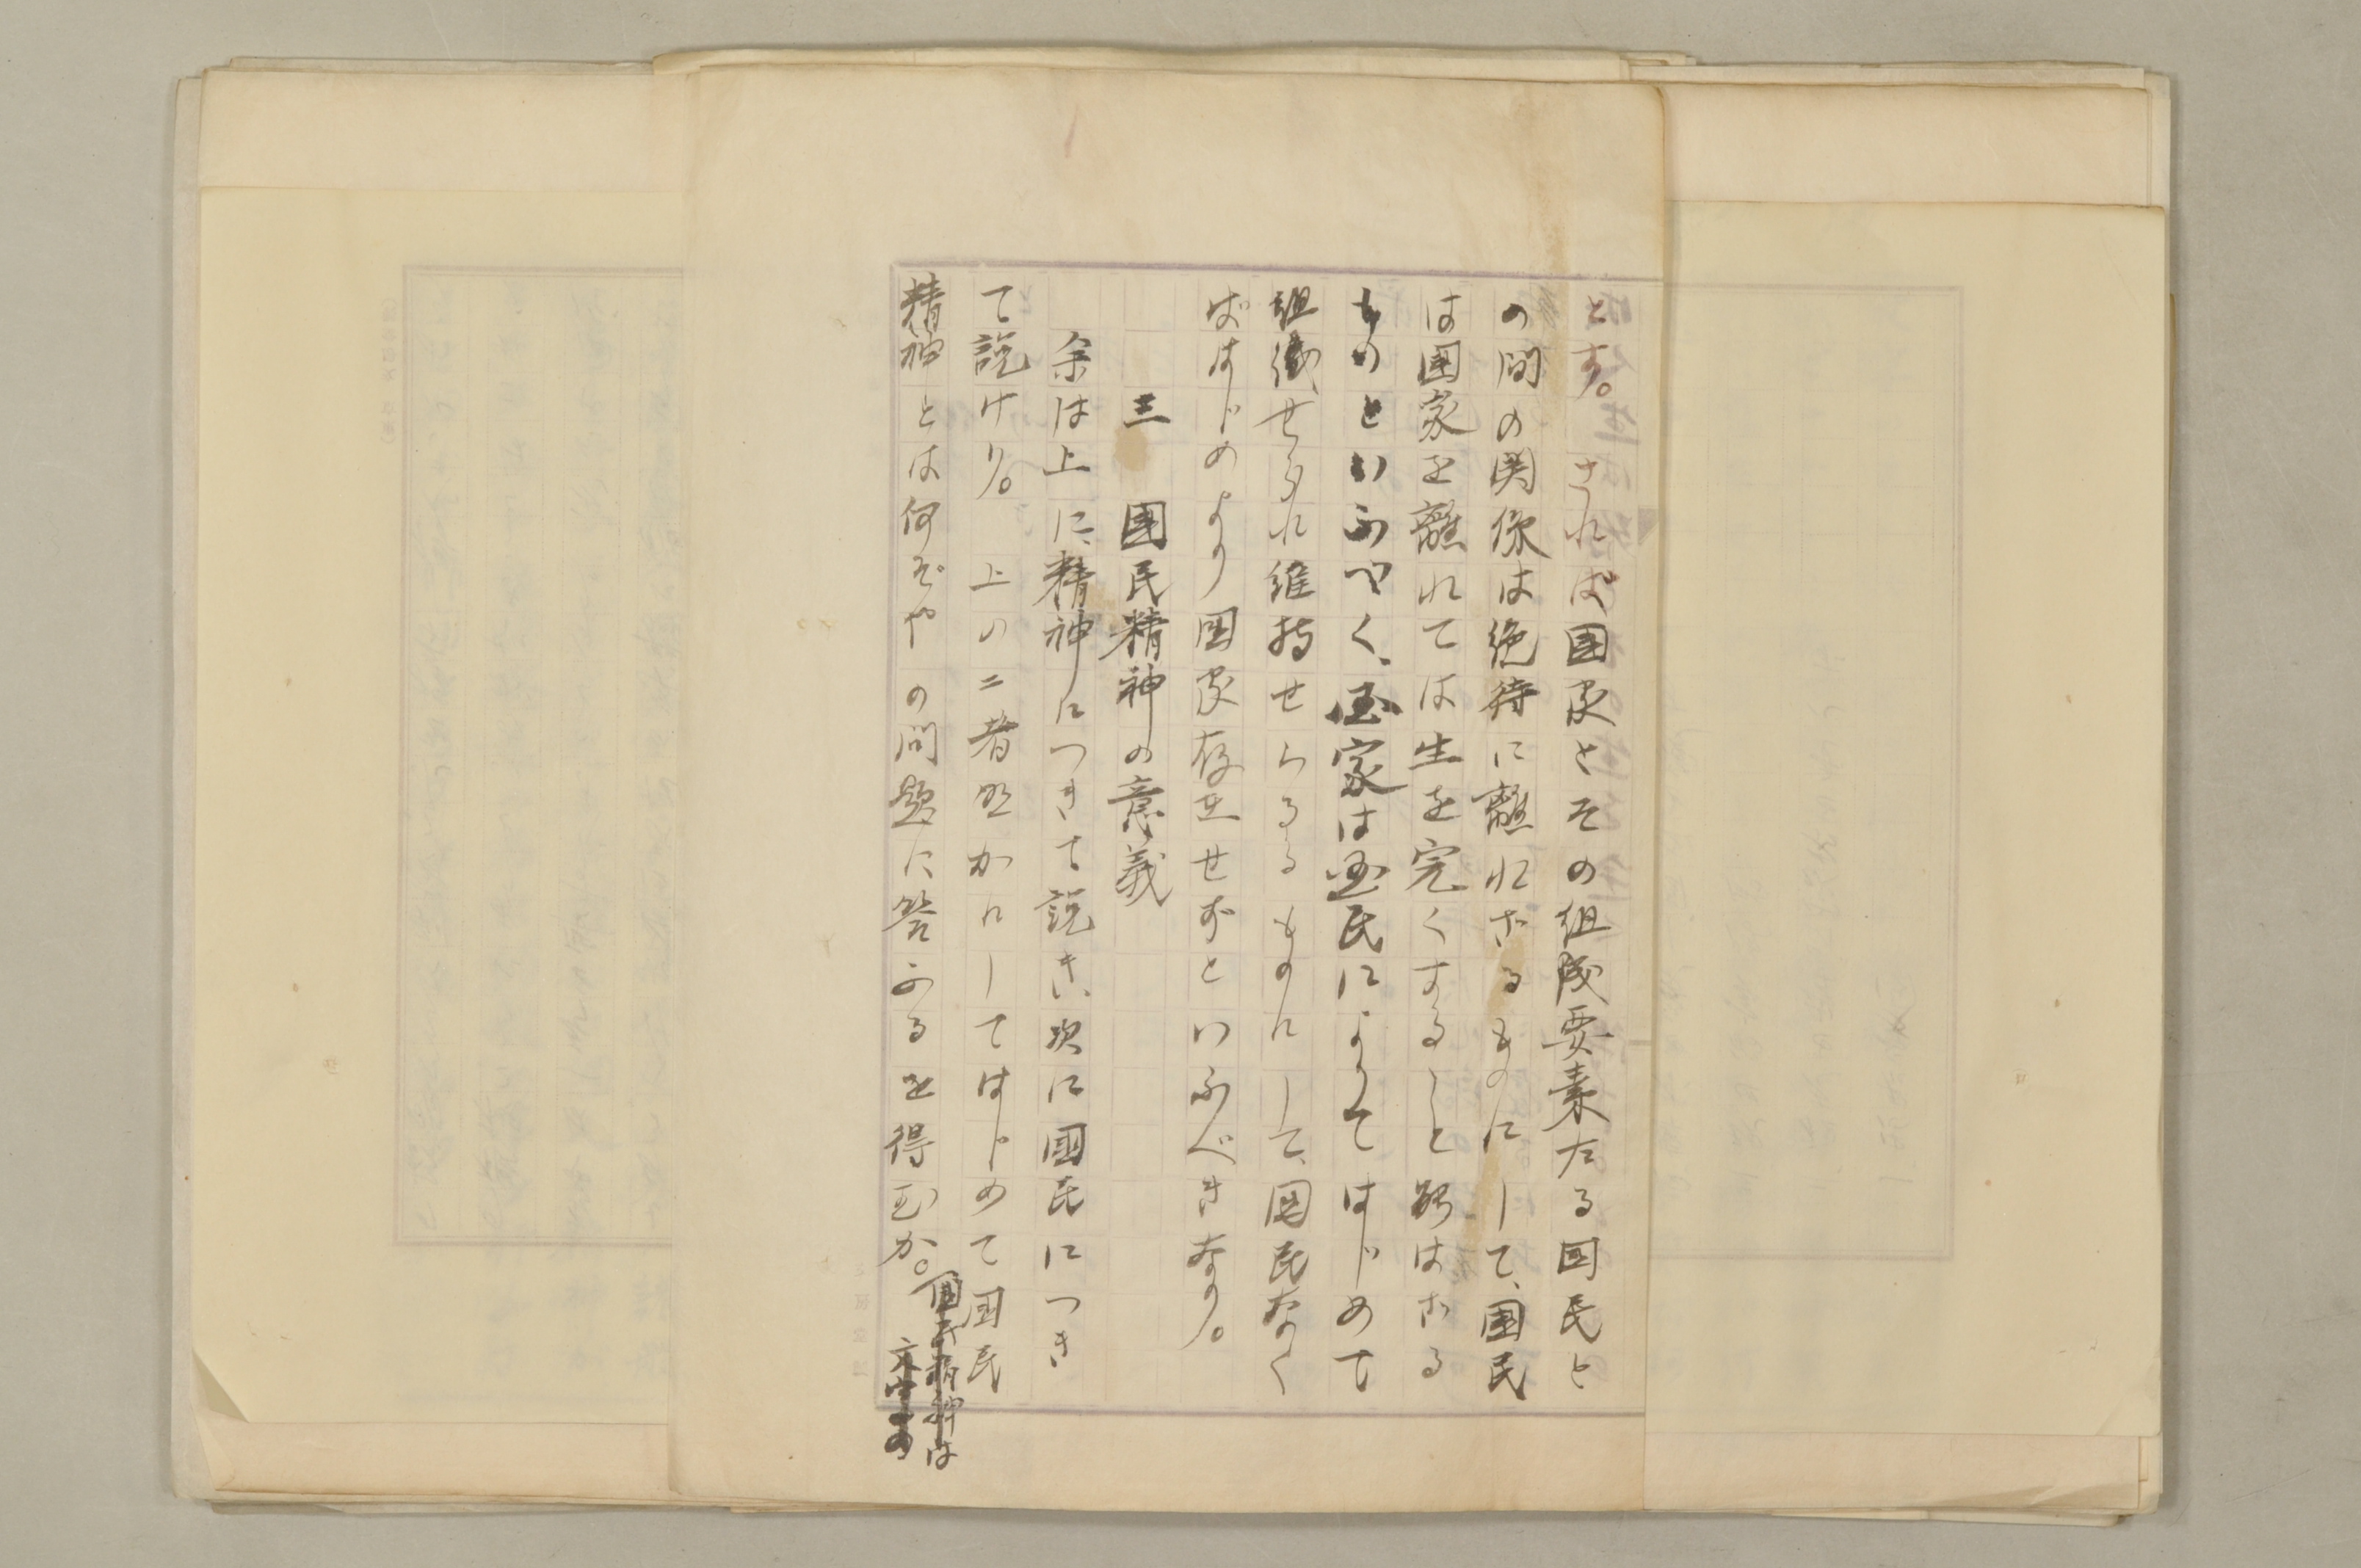 とす。されば国家とその組成要素たる国民と
の間の関係は絶待に離れざるものにして、国民
は国家を離れては生を完くすること能はざる
ものといふべく、国家は国民によりてはじめて
組織せられ維持せらるるものにして、国民なく
ばはじめより国家存在せずといふべきなり。
三 國民精神の意義
余は上に、精神につきて説き、次に國民につき
て説けり。上の二者明かにしてはじめて国民
精神とは何ぞやの問題に答ふるを得むか。
國民精神は